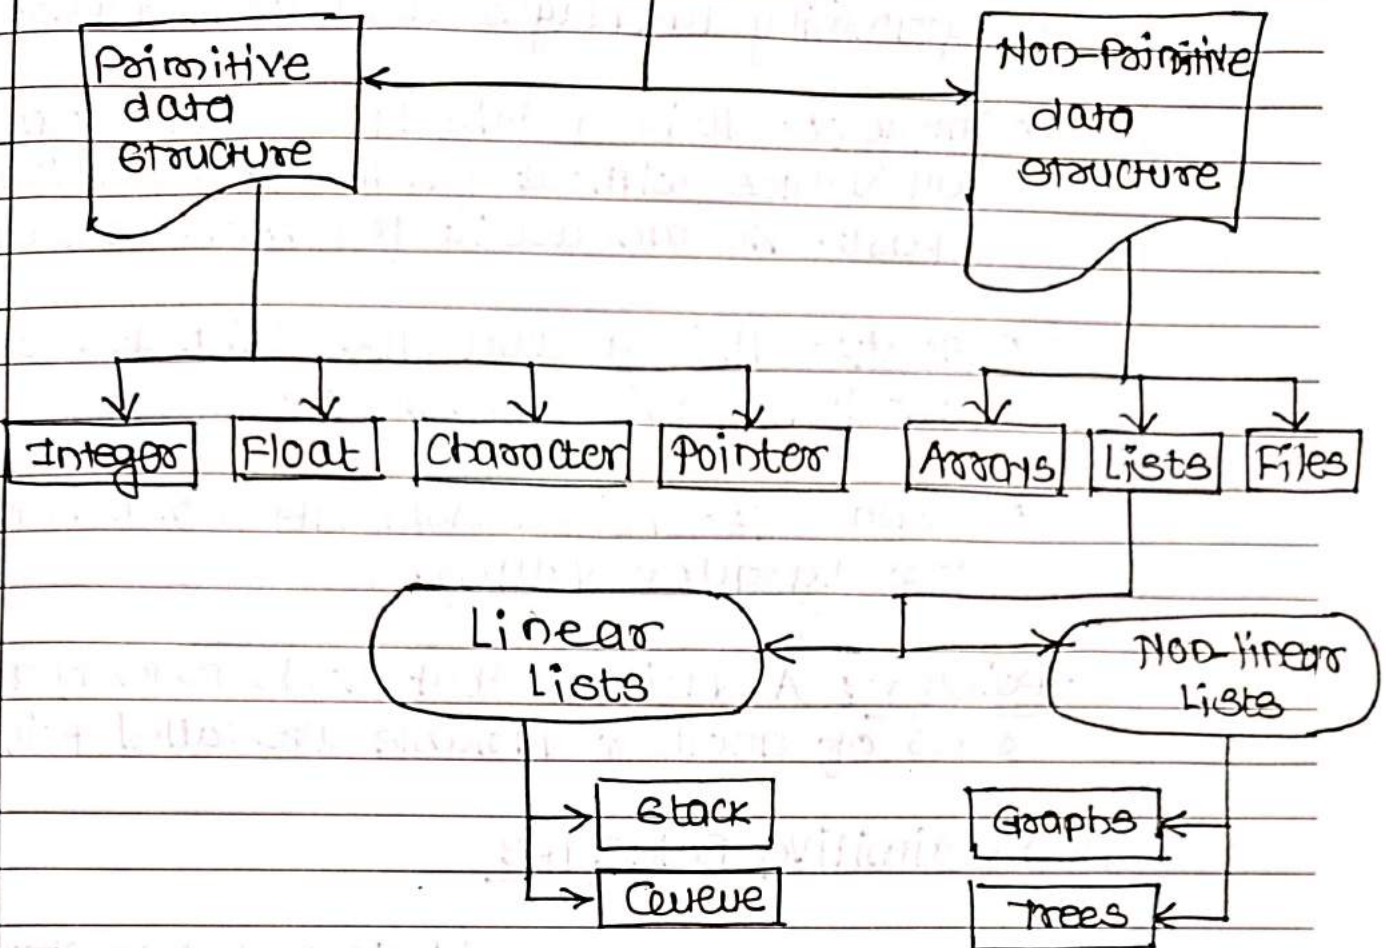 Primitive
data
structure
Non-Primitive
data
structure
Integer
Float
Character
Pointer
Arrays
Lists
Files
Linear
Lists
Non-linear
Lists
Stack
Queue
Graphs
Trees